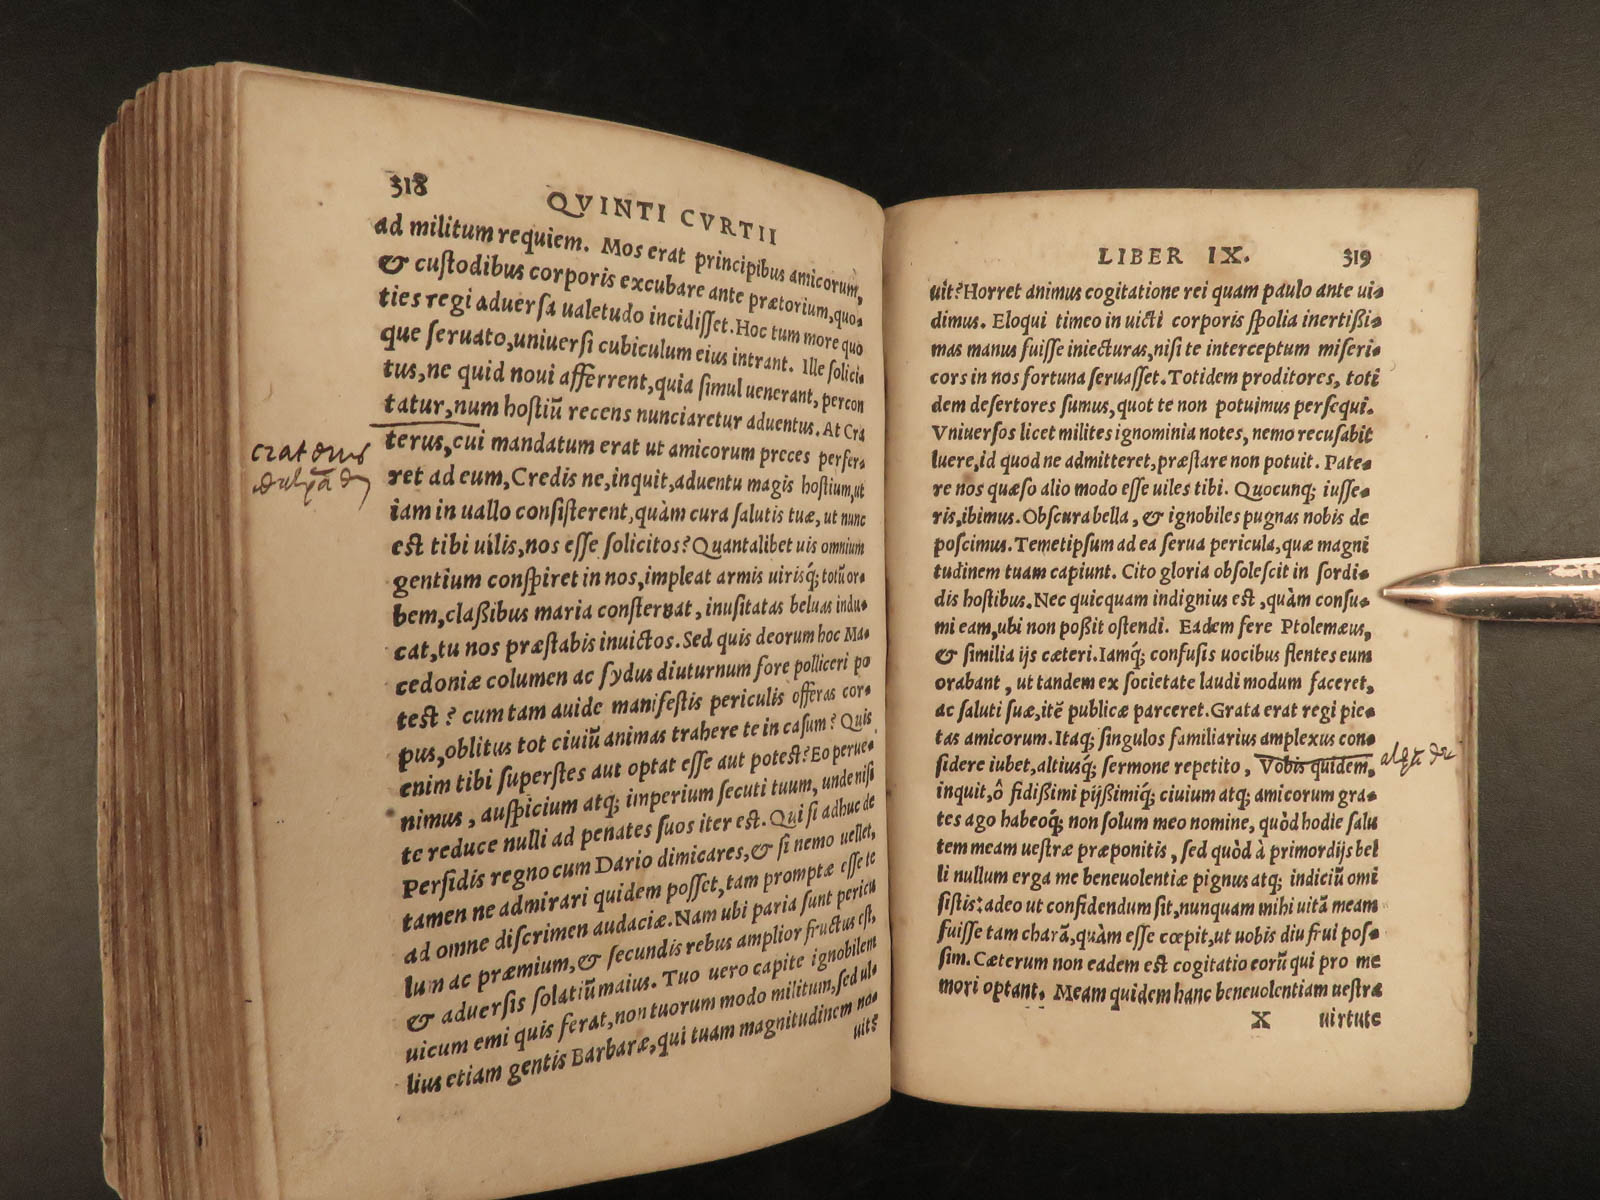 318
QVINTI CVRTII
ad militum requiem. Mos erat principibus amicorum,
& cuſtodibus corporis excubare ante prætorium, quo-
ties regi aduerſa ualetudo incidiſſet. Hoc tum more quo
que ſeruato, uniuerſi cubiculum eius intrant. Ille ſolici-
tus, ne quid noui afferrent, quia ſimul uenerant, percon
tatur, num hoſtiū recens nunciaretur aduentus. At Cra
terus, cui mandatum erat ut amicorum preces perfer-
ret ad eum, Credis ne, inquit, aduentu magis hoſtium, ut
iam in uallo conſiſterent, quàm cura ſalutis tuæ, ut nunc
eſt tibi uilis, nos eſſe ſolicitos? Quantalibet uis omnium
gentium conſpiret in nos, impleat armis uirisq́; totū or-
bem, claßibus maria conſternat, inuſitatas beluas indu-
cat, tu nos præſtabis inuictos. Sed quis deorum hoc Ma-
cedoniæ columen ac ſydus diuturnum fore polliceri po
teſt? cum tam auide manifeſtis periculis offeras cor-
pus, oblitus tot ciuiū animas trahere te in caſum? Quis
enim tibi ſuperſtes aut optat eſſe aut poteſt? Eo perue-
nimus, auſpicium atq; imperium ſecuti tuum, unde niſi
te reduce nulli ad penates ſuos iter eſt. Qui ſi adhuc de
Perſidis regno cum Dario dimicares, & ſi nemo uellet,
tamen ne admirari quidem poſſet, tam promptæ eſſe te
ad omne diſcrimen audaciæ. Nam ubi paria ſunt pericu
lum ac præmium, & ſecundis rebus amplior fructus eſt,
& aduerſis ſolatiū maius. Tuo uero capite ignobilem
uicum emi quis ferat, non tuorum modo militum, ſed ul-
lius etiam gentis Barbaræ, qui tuam magnitudinem no-
uit?
LIBER IX.
319
uit? Horret animus cogitatione rei quam paulo ante ui-
dimus. Eloqui timeo inuicti corporis ſpolia inertißi-
mas manus fuiſſe iniecturas, niſi te interceptum miſeri-
cors in nos fortuna ſeruaſſet. Totidem proditores, toti
dem deſertores ſumus, quot te non potuimus perſequi.
Vniuerſos licet milites ignominia notes, nemo recuſabit
luere, id quod ne admitteret, præſtare non potuit. Pate-
re nos quæſo alio modo eſſe uiles tibi. Quocunq; iuſſe-
ris, ibimus. Obſcura bella, & ignobiles pugnas nobis de
poſcimus. Temetipſum ad ea ſerua pericula, quæ magni
tudinem tuam capiunt. Cito gloria obſoleſcit in ſordi-
dis hoſtibus. Nec quicquam indignius eſt, quàm conſu-
mi eam, ubi non poßit oſtendi. Eadem fere Ptolemæus,
& ſimilia ijs cæteri. Iamq́; confuſis uocibus flentes eum
orabant, ut tandem ex ſocietate laudi modum faceret,
ac ſaluti ſuæ, itē publicæ parceret. Grata erat regi pie-
tas amicorum. Itaq; ſingulos familiarius amplexus con-
ſidere iubet, altiusq́; ſermone repetito, Vobis quidem,
inquit, ô fidißimi pijßimiq́; ciuium atq; amicorum gra-
tes ago habeoq́; non ſolum meo nomine, quòd hodie ſalu
tem meam ueſtræ præponitis, ſed quòd à primordijs bel
li nullum erga me beneuolentiæ pignus atq; indiciū omi
ſiſtis: adeo ut confidendum ſit, nunquam mihi uitā meam
fuiſſe tam charā, quàm eſſe cœpit, ut uobis diu frui poſ-
ſim. Cæterum non eadem eſt cogitatio eorū qui pro me
mori optant. Meam quidem hanc beneuolentiam ueſtræ
X uirtute